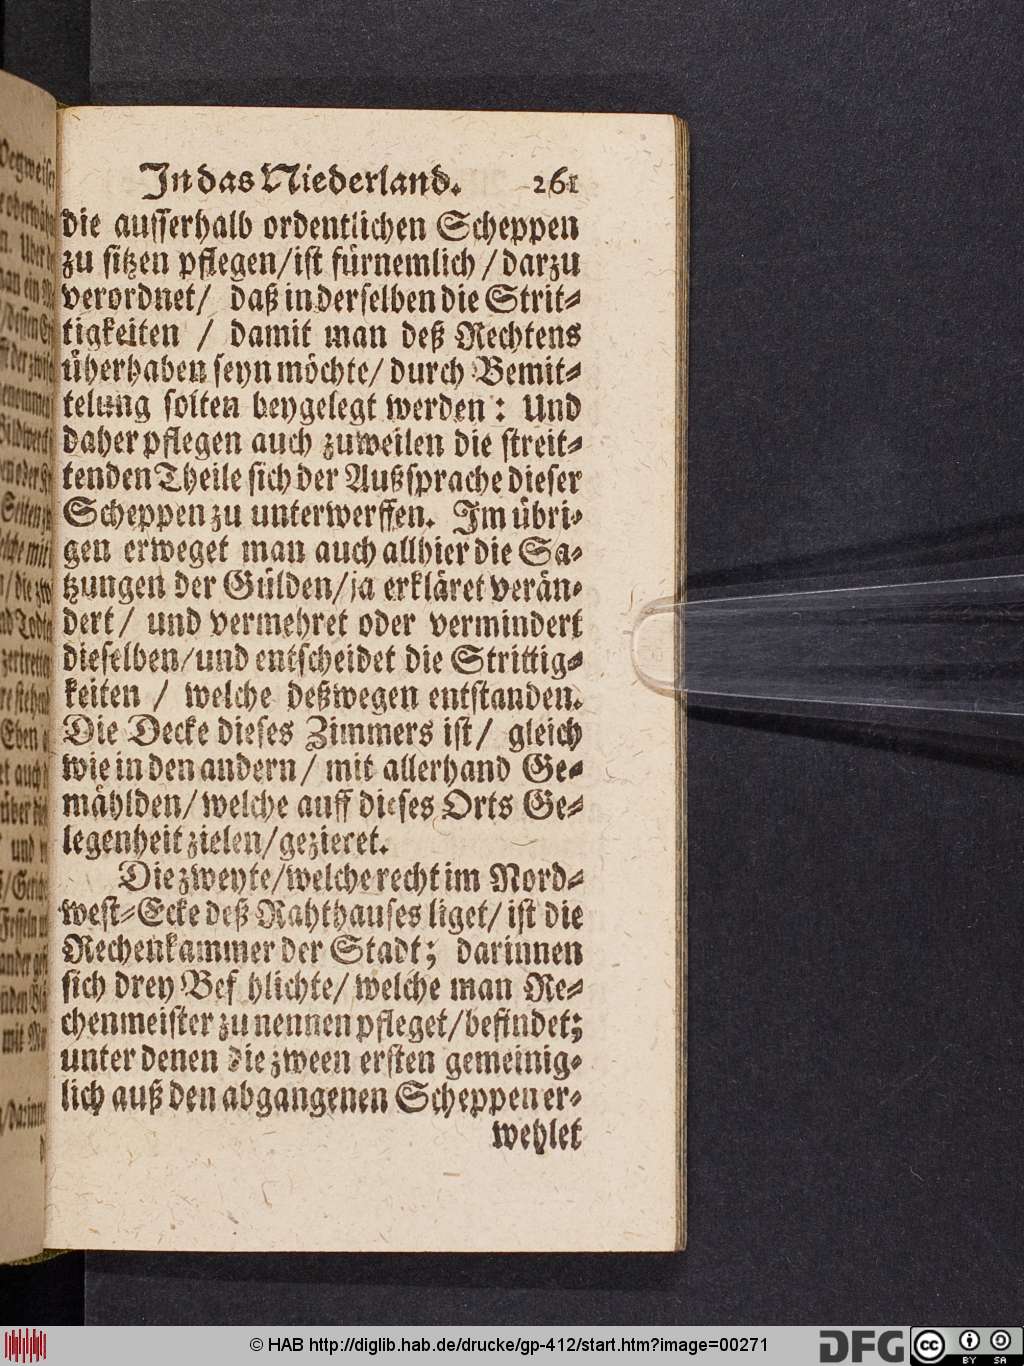 In das Niederland. 261
die ausserhalb ordentlichen Scheppen
zu sitzen pflegen/ist fürnemlich / darzu
verordnet/ daß in derselben die Strit-
tigkeiten / damit man deß Rechtens
überhaben seyn möchte/ durch Bemit-
telung solten beygelegt werden : Und
daher pflegen auch zuweilen die streit-
tenden Theile sich der Außsprache dieser
Scheppen zu unterwerffen. Im übri-
gen erweget man auch allhier die Sa-
tzungen der Gülden/ja erkläret verän-
dert/ und vermehret oder vermindert
dieselben/und entscheidet die Strittig-
keiten / welche deßwegen entstanden.
Die Decke dieses Zimmers ist/ gleich
wie in den andern/ mit allerhand Ge-
mählden/welche auff dieses Orts Ge-
legenheit zielen/gezieret.
Die zweyte/welche recht im Nord-
west-Ecke deß Rahthauses liget/ ist die
Rechenkammer der Stadt; darinnen
sich drey Bef hlichte/ welche man Re-
chenmeister zu nennen pfleget/befindet;
unter denen die zween ersten gemeinig-
lich auß den abgangenen Scheppen er-
wehlet
© HAB http://diglib.hab.de/drucke/gp-412/start.htm?image=00271
DFG
cc
BY SA